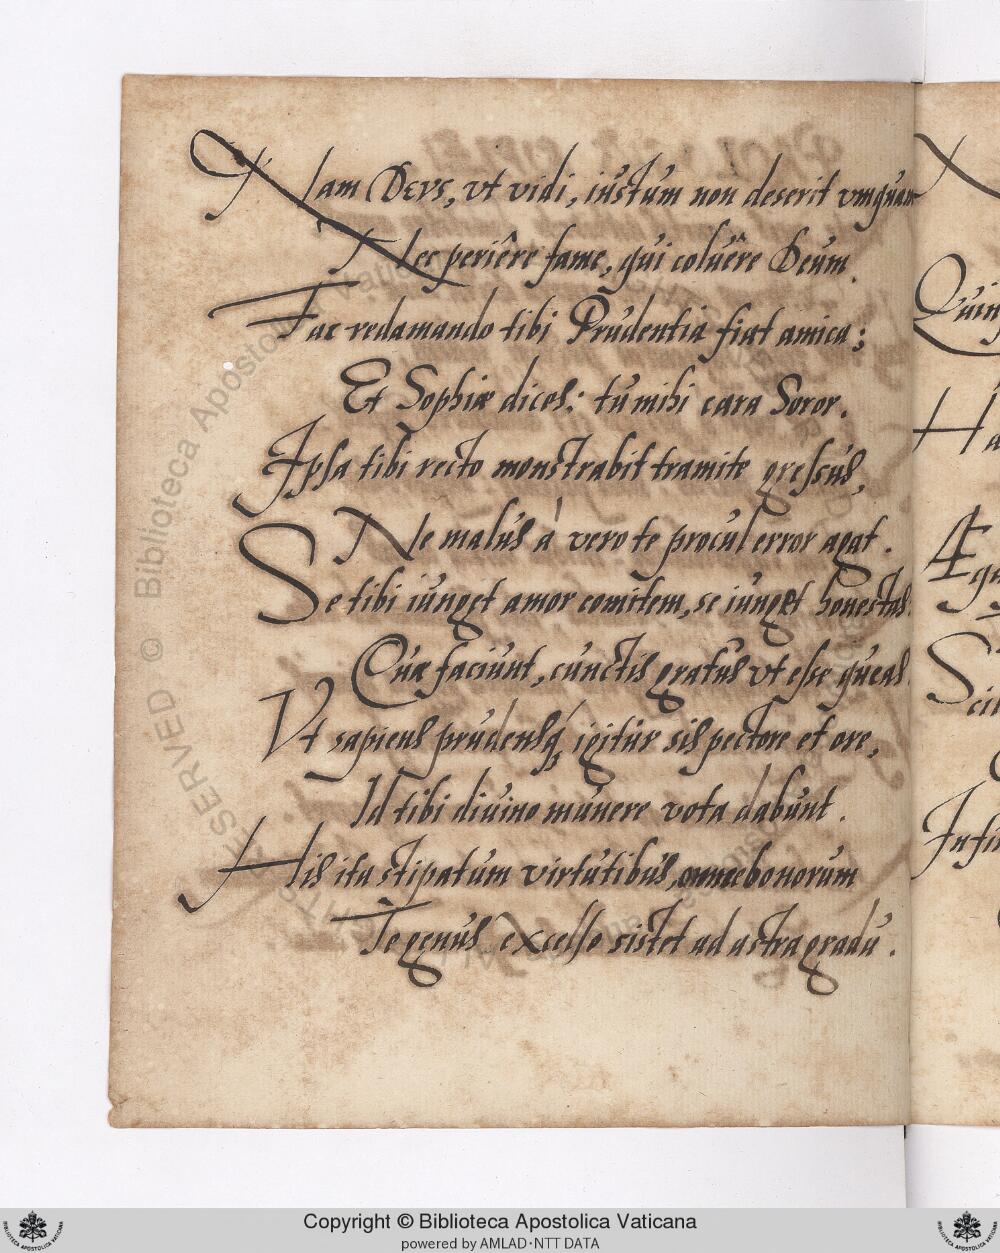 Nam DEVS, vt vidi, iustum non deserit vmquam
Nec periêre fame, qui coluêre Deum.
Fac redamando tibi Prudentia fiat amica;
Et Sophiæ dices: tu mihi cara Soror.
Ipsa tibi recto monstrabit tramite gressus,
Ne malus à vero te procul error agat.
Se tibi iunget amor comitem, se iunget honestas
Quæ faciunt, cunctis gratus vt esse queas.
Vt sapiens prudensq́; igitur sis pectore et ore,
Id tibi diuino munere vota dabunt.
His ita stipatum virtutibus, omne bonorum
Te genus excelso sistet ad astra gradu.
Quin
Ha
Æqu
Scit
Infi
RESERVED © Biblioteca Apostolica Vaticana
Copyright © Biblioteca Apostolica Vaticana
powered by AMLAD·NTT DATA